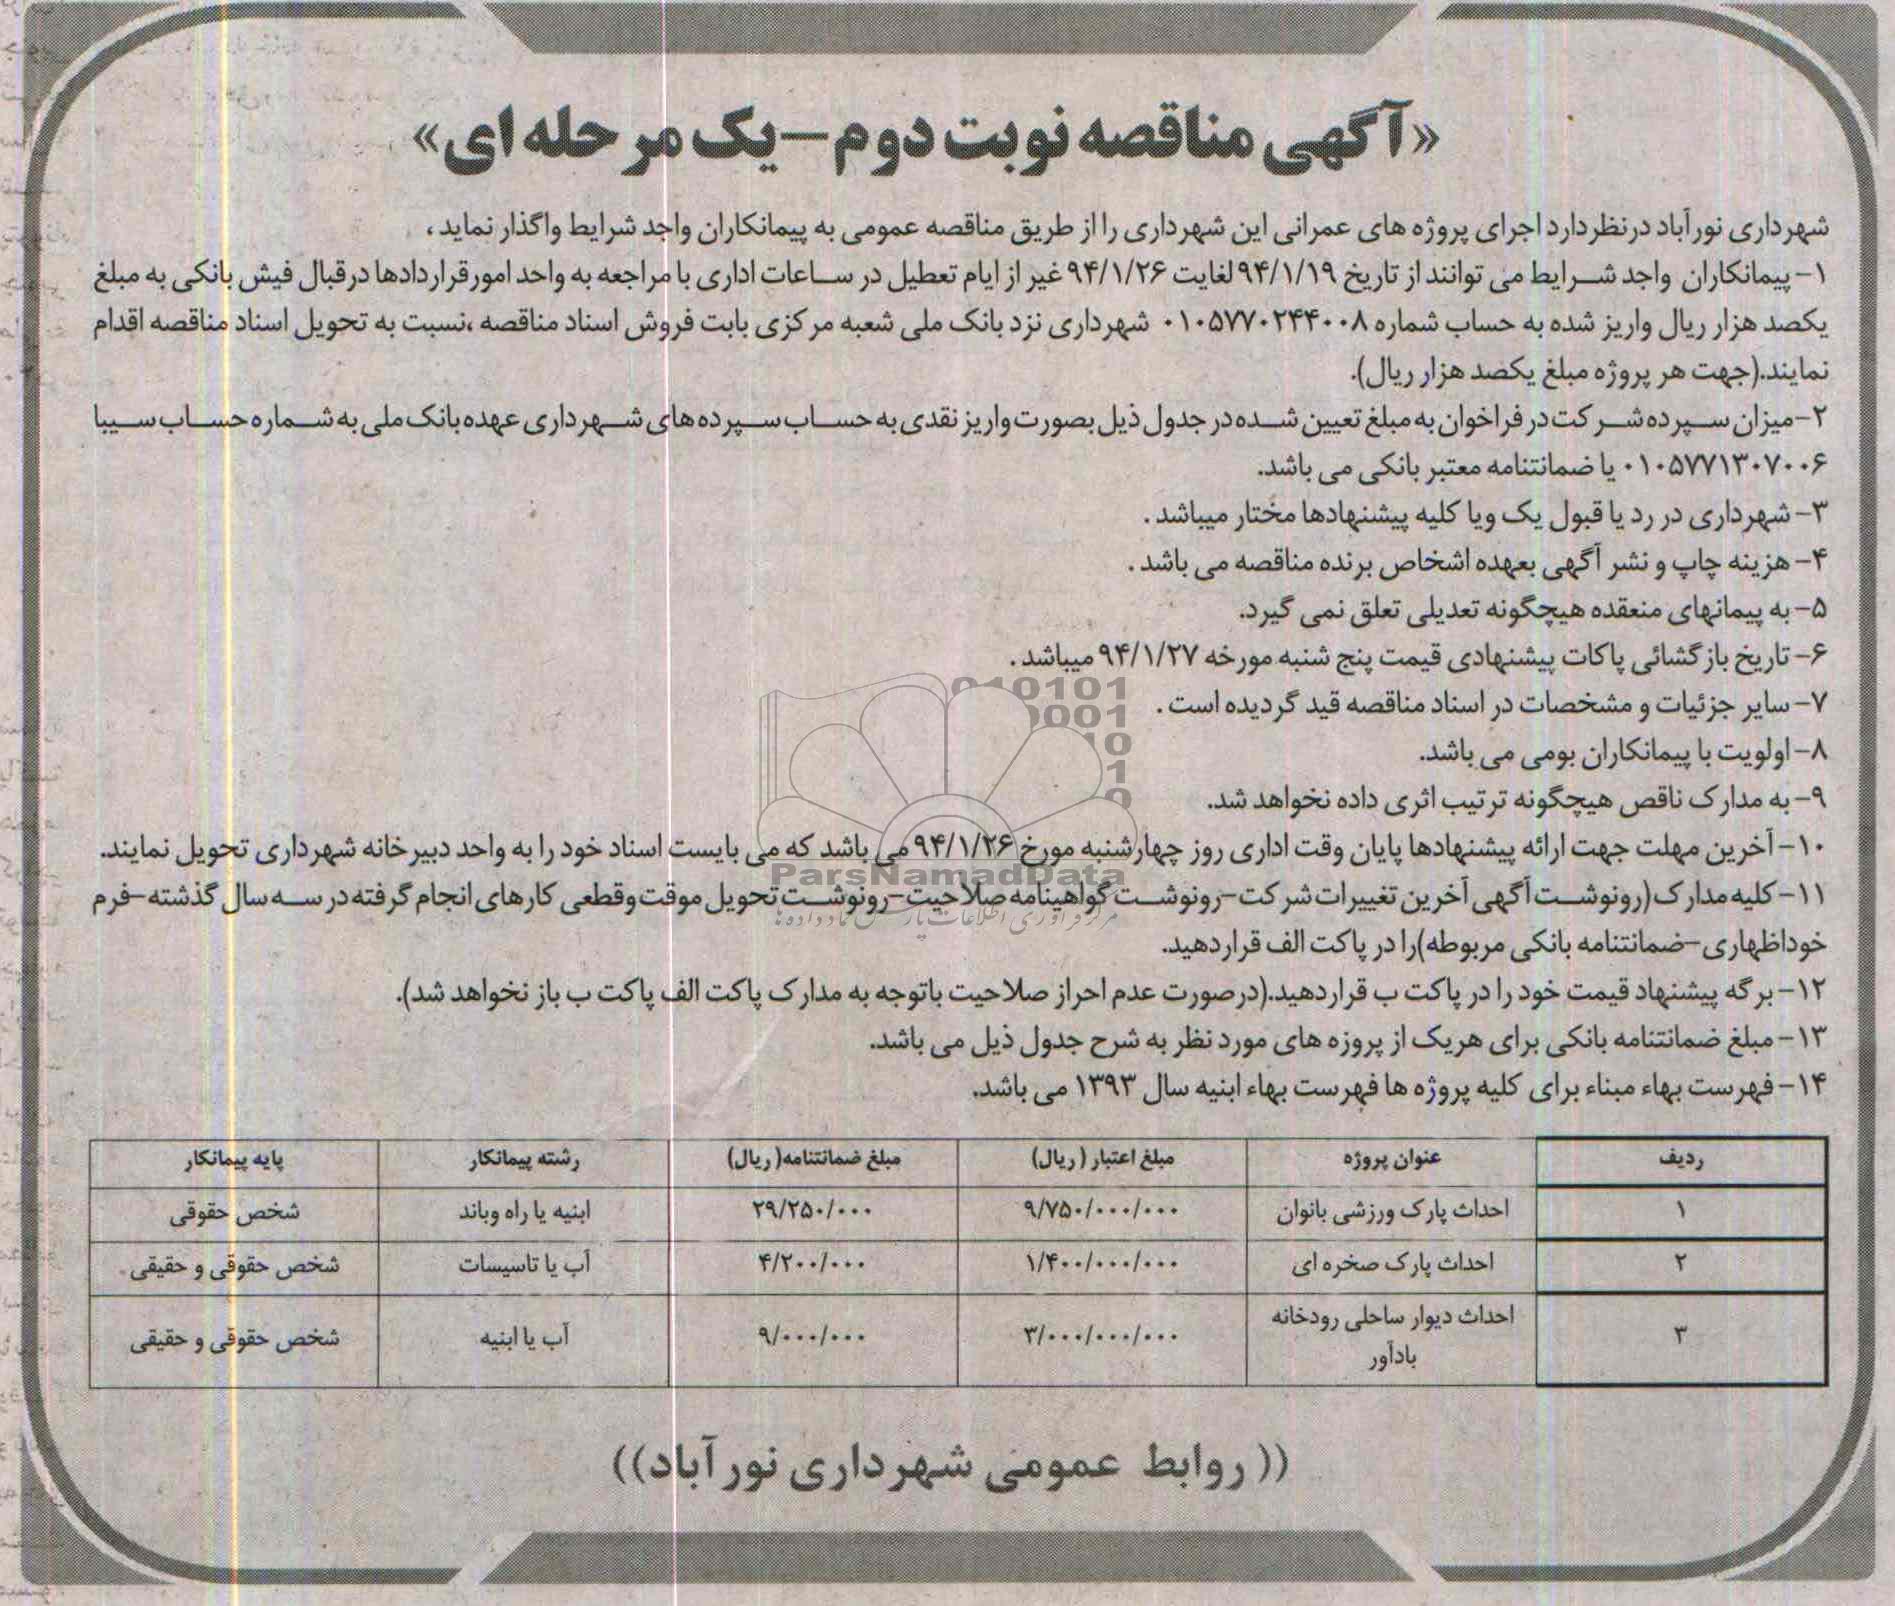 «آگهی مناقصه نوبت دوم – یک مرحله ای»
شهرداری نورآباد درنظردارد اجرای پروژه های عمرانی این شهرداری را از طریق مناقصه عمومی به پیمانکاران واجد شرایط واگذار نماید ،
۱- پیمانکاران واجد شرایط می توانند از تاریخ ۹۴/۱/۱۹ لغایت ۹۴/۱/۲۶ غیر از ایام تعطیل در ساعات اداری با مراجعه به واحد امورقراردادها درقبال فیش بانکی به مبلغ
یکصد هزار ریال واریز شده به حساب شماره ۰۱۰۵۷۷۰۲۴۴۰۰۸ شهرداری نزد بانک ملی شعبه مرکزی بابت فروش اسناد مناقصه ،نسبت به تحویل اسناد مناقصه اقدام
نمایند.(جهت هر پروژه مبلغ یکصد هزار ریال).
۲-میزان سپرده شرکت در فراخوان به مبلغ تعیین شده در جدول ذیل بصورت واریز نقدی به حساب سپرده های شهرداری عهده بانک ملی به شماره حساب سیبا
۰۱۰۵۷۷۱۳۰۷۰۰۶ یا ضمانتنامه معتبر بانکی می باشد.
۳- شهرداری در رد یا قبول یک ویا کلیه پیشنهادها مختار میباشد .
۴- هزینه چاپ و نشر آگهی بعهده اشخاص برنده مناقصه می باشد .
۵- به پیمانهای منعقده هیچگونه تعدیلی تعلق نمی گیرد.
۶- تاریخ بازگشائی پاکات پیشنهادی قیمت پنج شنبه مورخه ۹۴/۱/۲۷ میباشد .
۷- سایر جزئیات و مشخصات در اسناد مناقصه قید گردیده است .
۸- اولویت با پیمانکاران بومی می باشد.
۹- به مدارک ناقص هیچگونه ترتیب اثری داده نخواهد شد.
۱۰- آخرین مهلت جهت ارائه پیشنهادها پایان وقت اداری روز چهارشنبه مورخ ۹۴/۱/۲۶ می باشد که می بایست اسناد خود را به واحد دبیرخانه شهرداری تحویل نمایند.
ParsNamadData
۱۱- کلیه مدارک (رونوشت آگهی آخرین تغییرات شرکت-رونوشت گواهینامه صلاحیت-رونوشت تحویل موقت وقطعی کارهای انجام گرفته در سه سال گذشته-فرم
خوداظهاری-ضمانتنامه بانکی مربوطه)را در پاکت الف قراردهید.
۱۲- برگه پیشنهاد قیمت خود را در پاکت ب قراردهید.(درصورت عدم احراز صلاحیت باتوجه به مدارک پاکت الف پاکت ب باز نخواهد شد).
۱۳- مبلغ ضمانتنامه بانکی برای هریک از پروزه های مورد نظر به شرح جدول ذیل می باشد.
۱۴- فهرست بهاء مبناء برای کلیه پروژه ها فهرست بهاء ابنیه سال ۱۳۹۳ می باشد.
ردیف عنوان پروژه مبلغ اعتبار (ریال) مبلغ ضمانتنامه(ریال) رشته پیمانکار پایه پیمانکار
۱ احداث پارک ورزشی بانوان ۹/۷۵۰/۰۰۰/۰۰۰ ۲۹/۲۵۰/۰۰۰ ابنیه یا راه وباند شخص حقوقی
۲ احداث پارک صخره ای ۱/۴۰۰/۰۰۰/۰۰۰ ۴/۲۰۰/۰۰۰ آب یا تاسیسات شخص حقوقی و حقیقی
۳ احداث دیوار ساحلی رودخانه بادآور ۳/۰۰۰/۰۰۰/۰۰۰ ۹/۰۰۰/۰۰۰ آب یا ابنیه شخص حقوقی و حقیقی
(( روابط عمومی شهرداری نورآباد))